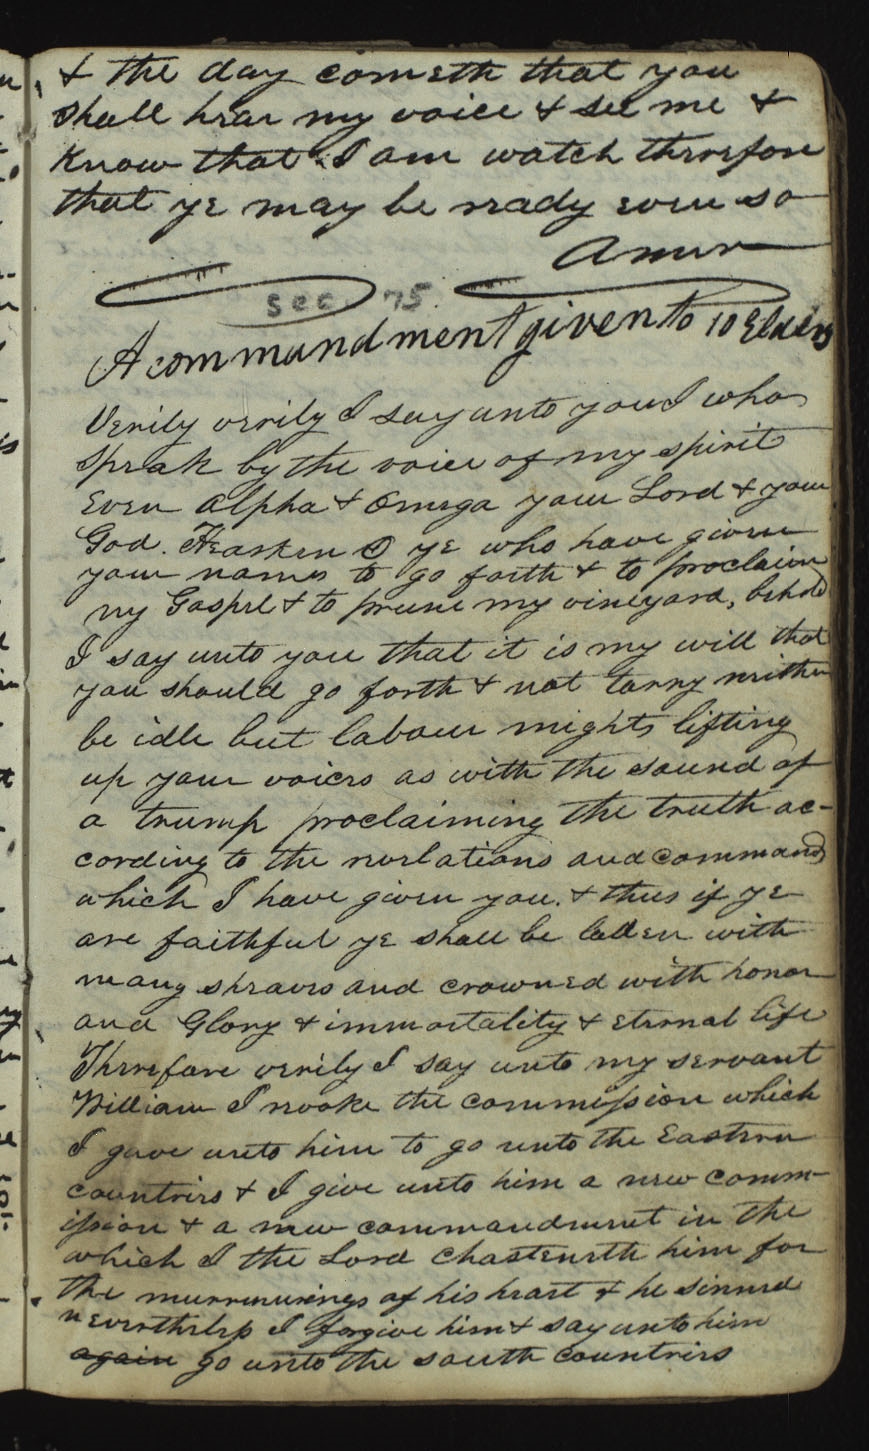 & the day cometh that you
shall hear my voice & see me &
know that I am watch therefore
that ye may be ready even so
Amen
Sec. 75.
A commandment given to 10 Elders
Verily verily I say unto you I who
speak by the voice of my spirit
Even Alpha & Omega your Lord & your
God. Hearken O ye who have given
your names to go forth & to proclaim
my Gospel & to prune my vineyard, behold
I say unto you that it is my will that
you should go forth & not tarry neither
be idle but labour mights lifting
up your voices as with the sound of
a trump proclaiming the truth ac-
cording to the revelations and commands
which I have given you. & thus if ye
are faithful ye shall be laden with
many sheaves and crowned with honor
and Glory & immortality & eternal life
Therefore verily I say unto my servant
William I revoke the commission which
I gave unto him to go unto the Eastern
countries & I give unto him a new comm-
ission & a new commandment in the
which I the Lord chasteneth him for
the murmurings of his heart & he sinned
nevertheless I forgive him & say unto him
again go unto the south countries